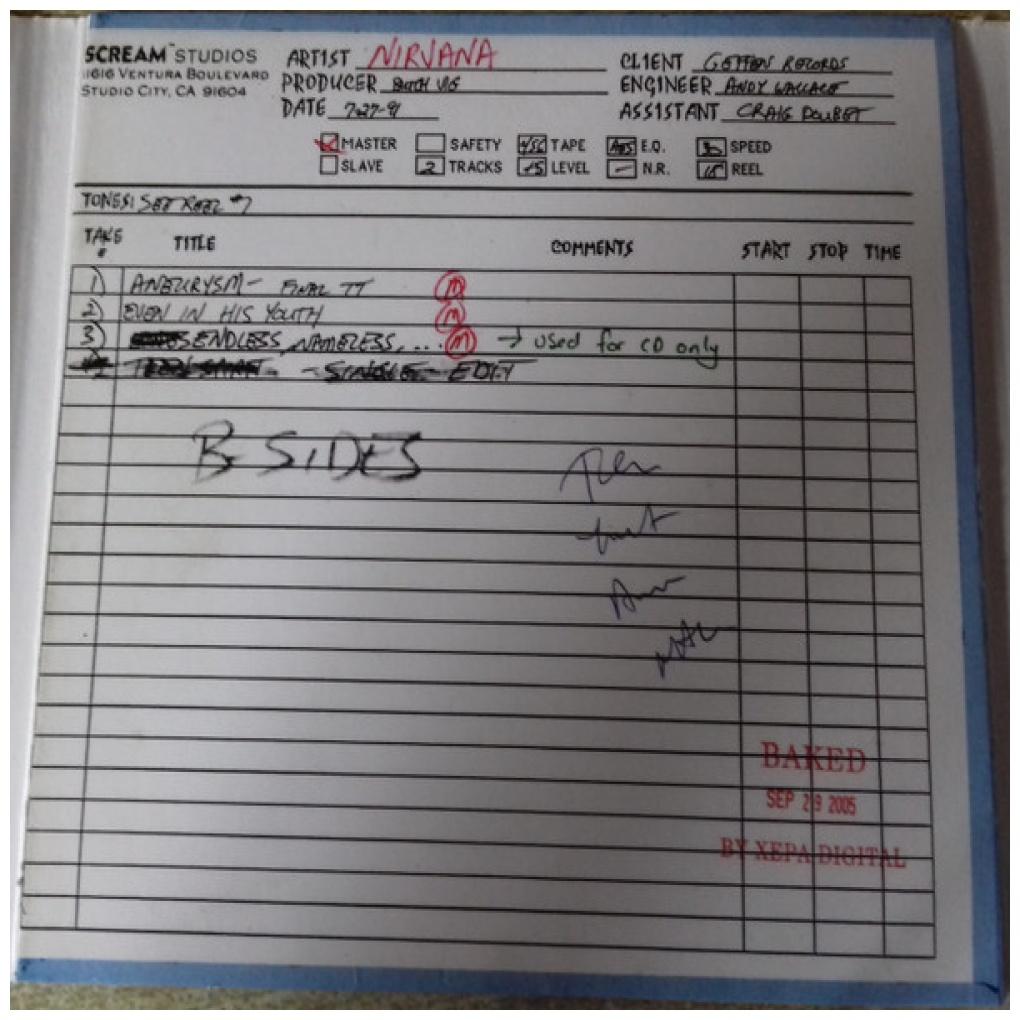 SCREAM STUDIOS
11616 VENTURA BOULEVARD
STUDIO CITY, CA 91604
ARTIST NIRVANA
PRODUCER BUTCH VIG
DATE 7-27-91
CLIENT GEFFEN RECORDS
ENGINEER ANDY WALLACE
ASSISTANT CRAIG DOUBET
MASTER SAFETY 456 TAPE AES E.Q. 30 SPEED
SLAVE 2 TRACKS +5 LEVEL — N.R. 15 REEL
TONES: SEE REEL #7
TAKE # TITLE COMMENTS START STOP TIME
1) ANEURYSM - FINAL TT M
2) EVEN IN HIS YOUTH M
3) ENDLESS, NAMELESS, ... M → used for CD only
- SINGLE EDIT
B SIDES
BAKED
SEP 29 2005
BY XEPA DIGITAL